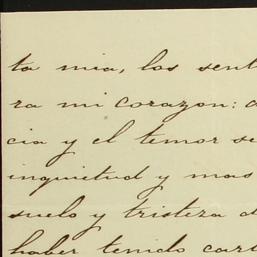 ta mia, las sent
ra mi corazon: a
cia y el temor se
inquietud y mas
suelo y tristeza d
haber tenido cart